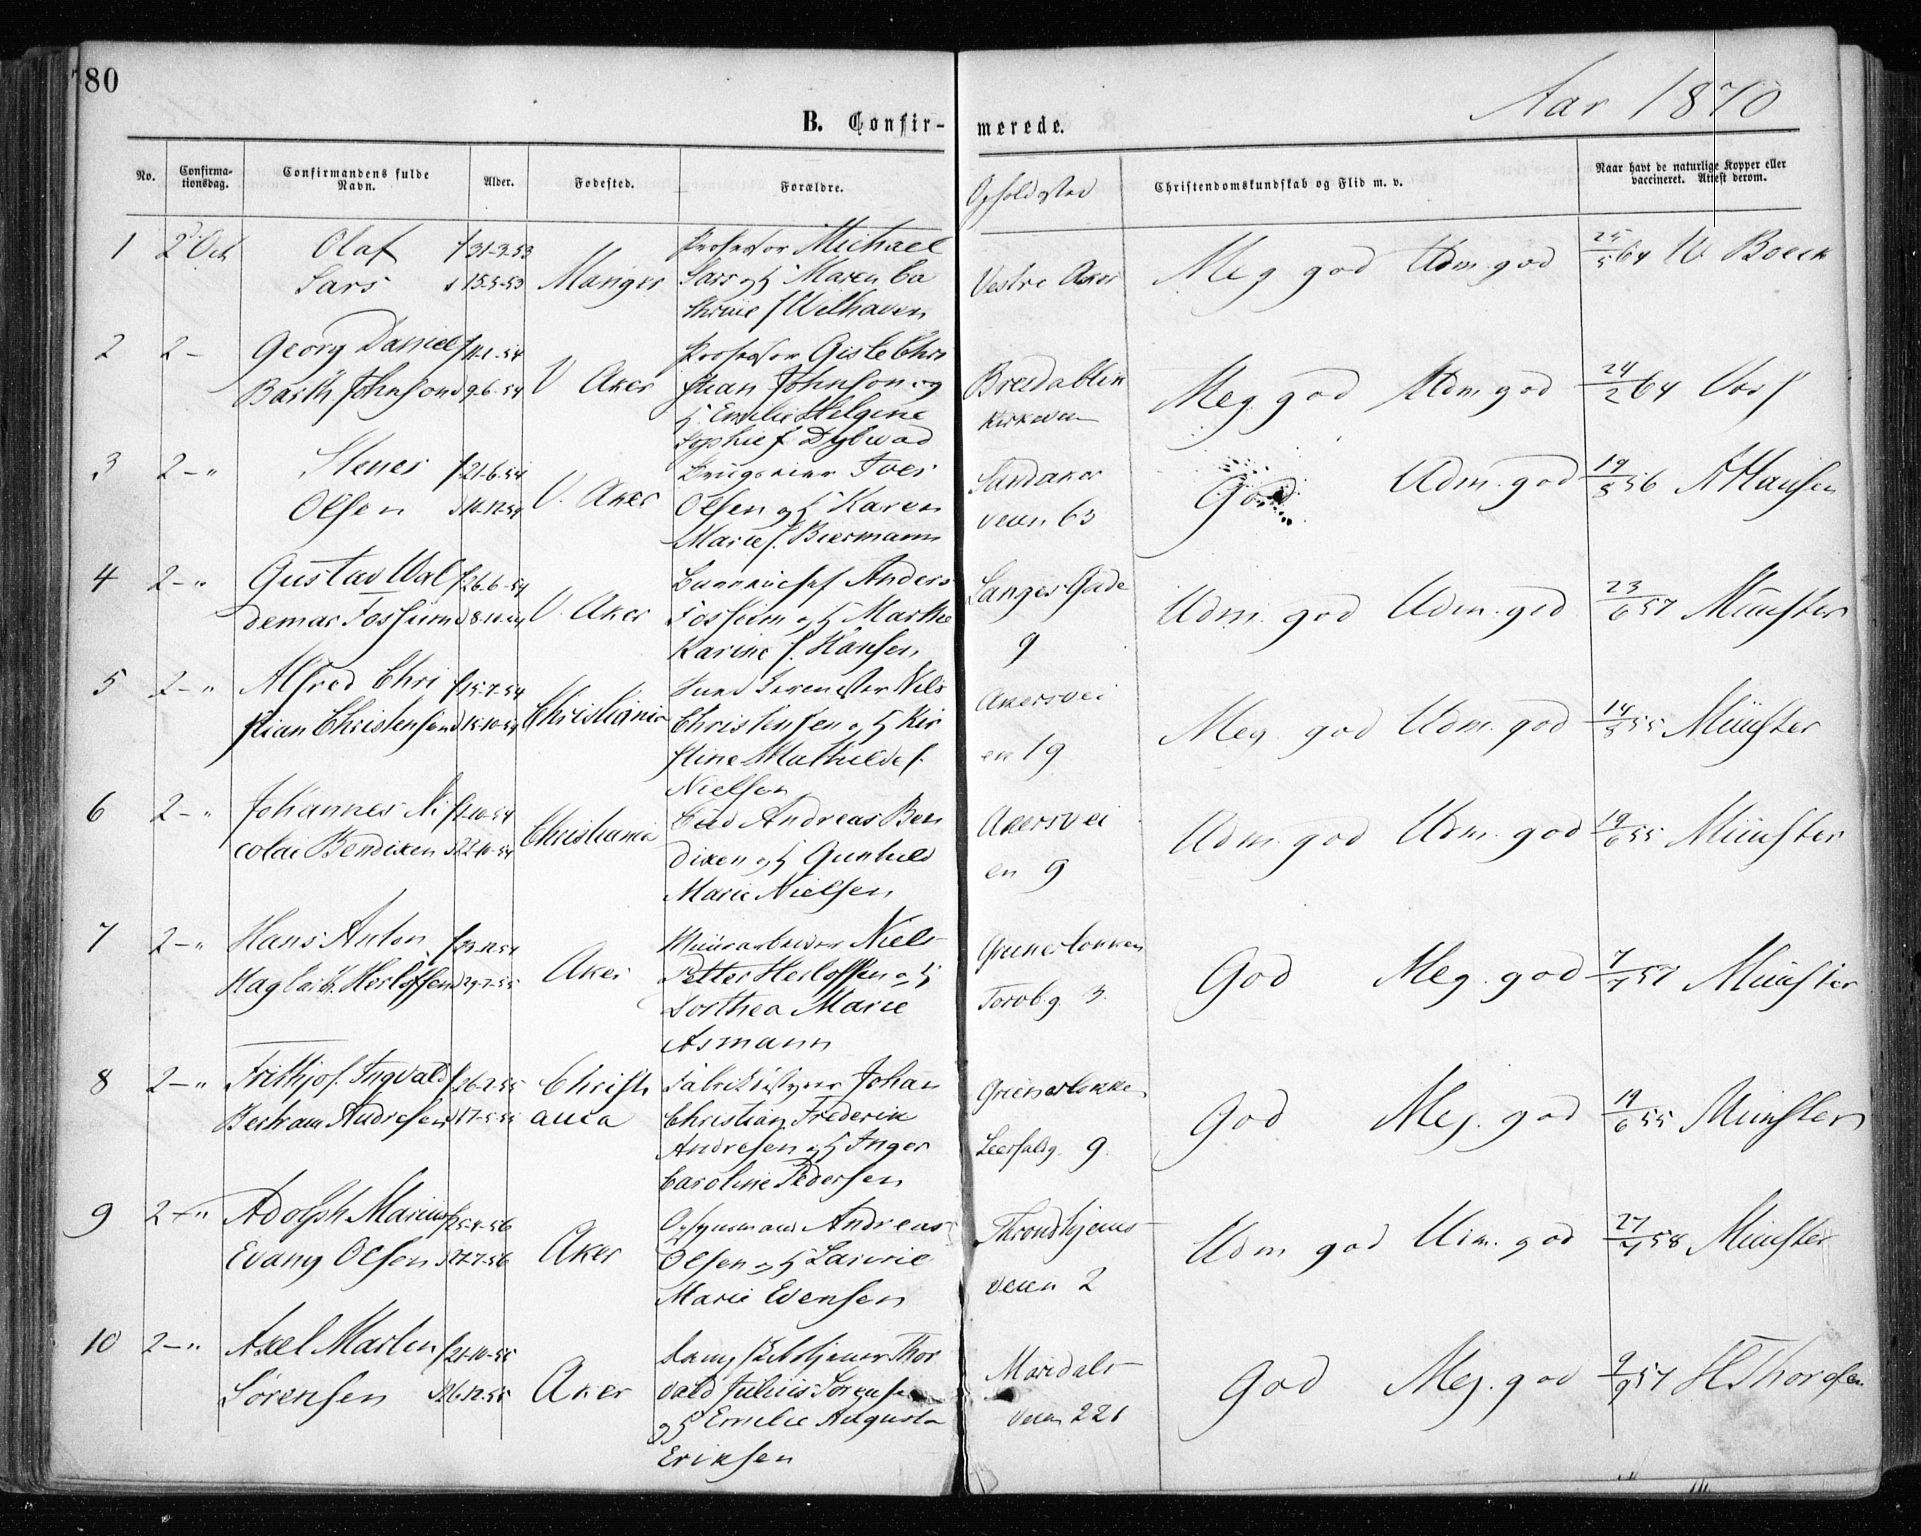 80
Aar 1870
B. Confirmerede.
No. Confirmationsdag. Confirmandens fulde Navn. Alder. Fødested. Forældre. Opholdssted Christendomskundskab og Flid m. v. Naar havt de naturlige Kopper eller vaccineret. Attest derom.
1 2 Oct Olaf f 31-3-53 Professor Michael
Sars d 15-5-53 Manger Sars og H Maren Ca Vestre Aker Meg god Udm. god 25/5 64 W Boeck
thrine f Welhaven
2 2 - Georg Daniel f 11-1-54 Professor Gisle Chri
Barth Johnson d 9-6-54 V Aker stian Johnson og Bredablik Meg. god Udm god 24/2 64 Voss
H. Emilie Helgine Kirkeveien
Sophie f Dybwad
3 2 - " Stener f 21-6-54 Brugseier Iver Sandaker
Olsen d 10-12-54 V. Aker Olsen og H Karen veien 63 God Udm. god 19/8 56 A Hansen
Marie f. Biermann
4 2 - " Gustav Wal f 26-6-54 Anders Langes Gade
demar Fossum V. Aker Fossum og H Marthe 9 Udm. god Udm. god 23/6 57 Münster
Karine f. Hansen
5 2 - " Alfred Chri f 15-7-54 Nils Akersvei
stian Christensen d 15-10-54 Christiania Christensen og H Kir en 19 Meg. god Udm. god 14/8 55 Münster
stine Mathilde f.
Nielsen
6 2 - " Johannes Ni f 1-10-54 Andreas Ben Akersvei
colai Bendixen d 22-10-54 Christiania dixen og H Gunhild en 9 Udm. god Udm. god 19/6 55 Münster
Marie Nielsen
7 2 - " Hans Anton f 23-12-54 Muurarbeider Niels Grünerløkken
Herloffsen Aker Petter Herloffsen og H Torvbg. 3. God Meg. god 7/7 57 Münster
Dorthea Marie
Asmann
8 2 - " Frithjof Ingvald f 26-2-55 Christi Johan Grünerløkken
Bertram Andresen d 17-5-55 ania Christian Frederik Leerfaldg. 9. God Meg. god 19/6 55 Münster
Andresen og H Inger
Caroline Pedersen
9 2 - " Adolph Marius f 25-4-56 Opsynsmand Andreas Throndhjems
Evany Olsen d 27-7-56 Aker Olsen og H Laurie veien 2 Udm god Udm. god 27/4 58 Münster
Marie Evensen
10 2 - " Axel Martin f 21-10-55 Thor Maridals
Sørensen d 26-12-55 Aker vald Julius Sørensen veien 221 God Meg. god 9/9 57 H Thoresen
og H Emilie Augusta
Eriksen